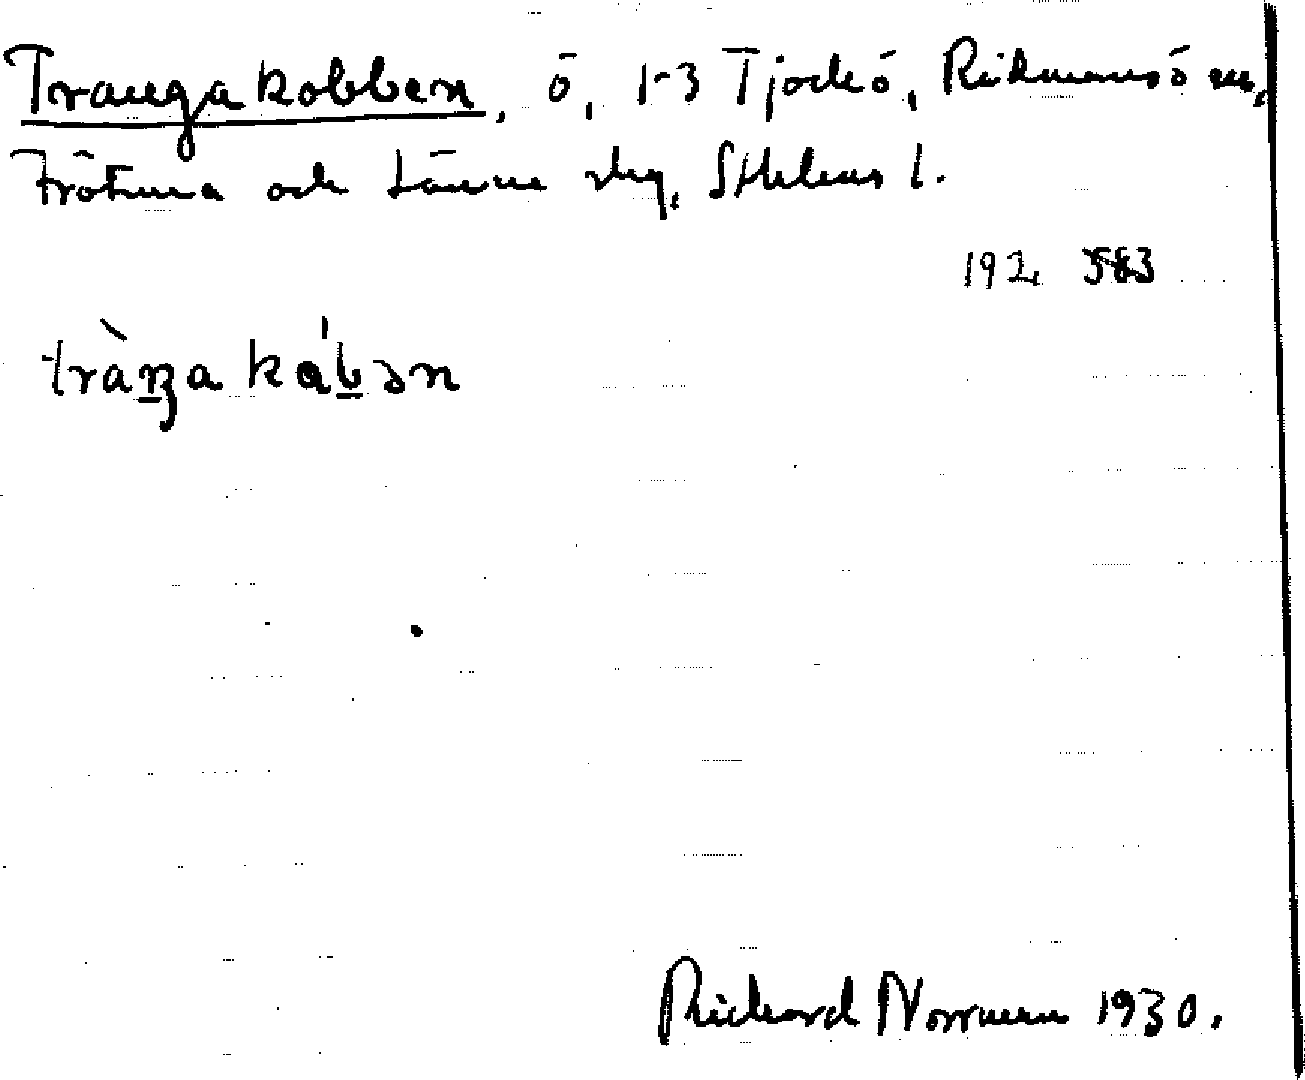 Trangakobben, ö, 1-3 Tjockö, Rådmansö sn,
Frötuna och Länna skg, Sthlms l.
192 583
tràŋa kábən
Rickard Norrman 1930.